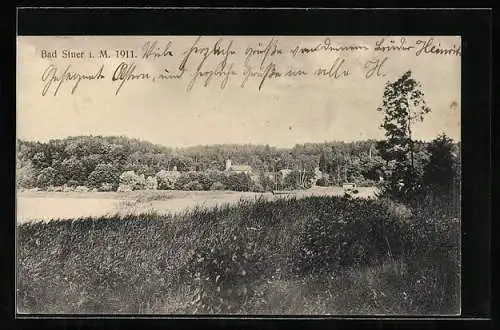 Bad Stuer i. M. 1911. Viele herzliche Grüße von deinem Bruder Heinrich
Gesegnete Ostern, und herzliche Grüße an alle H